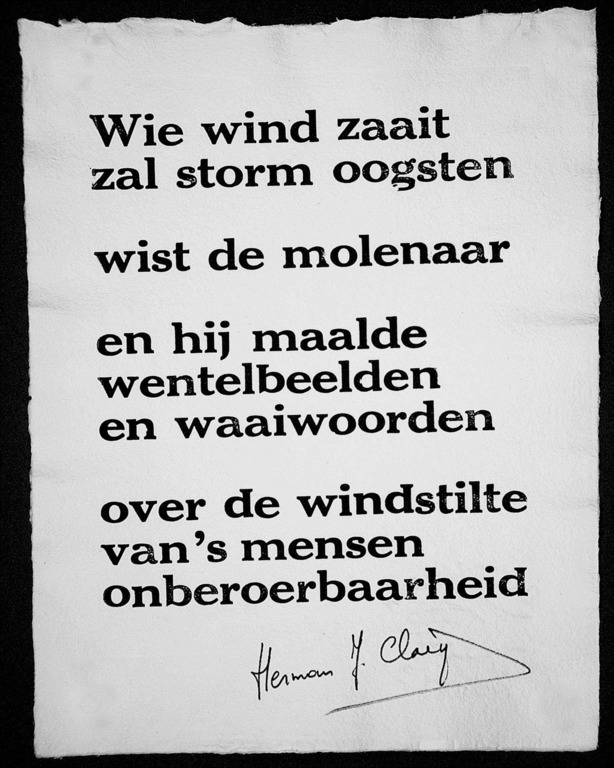 Wie wind zaait
zal storm oogsten
wist de molenaar
en hij maalde
wentelbeelden
en waaiwoorden
over de windstilte
van 's mensen
onberoerbaarheid
Herman J. Claeÿ